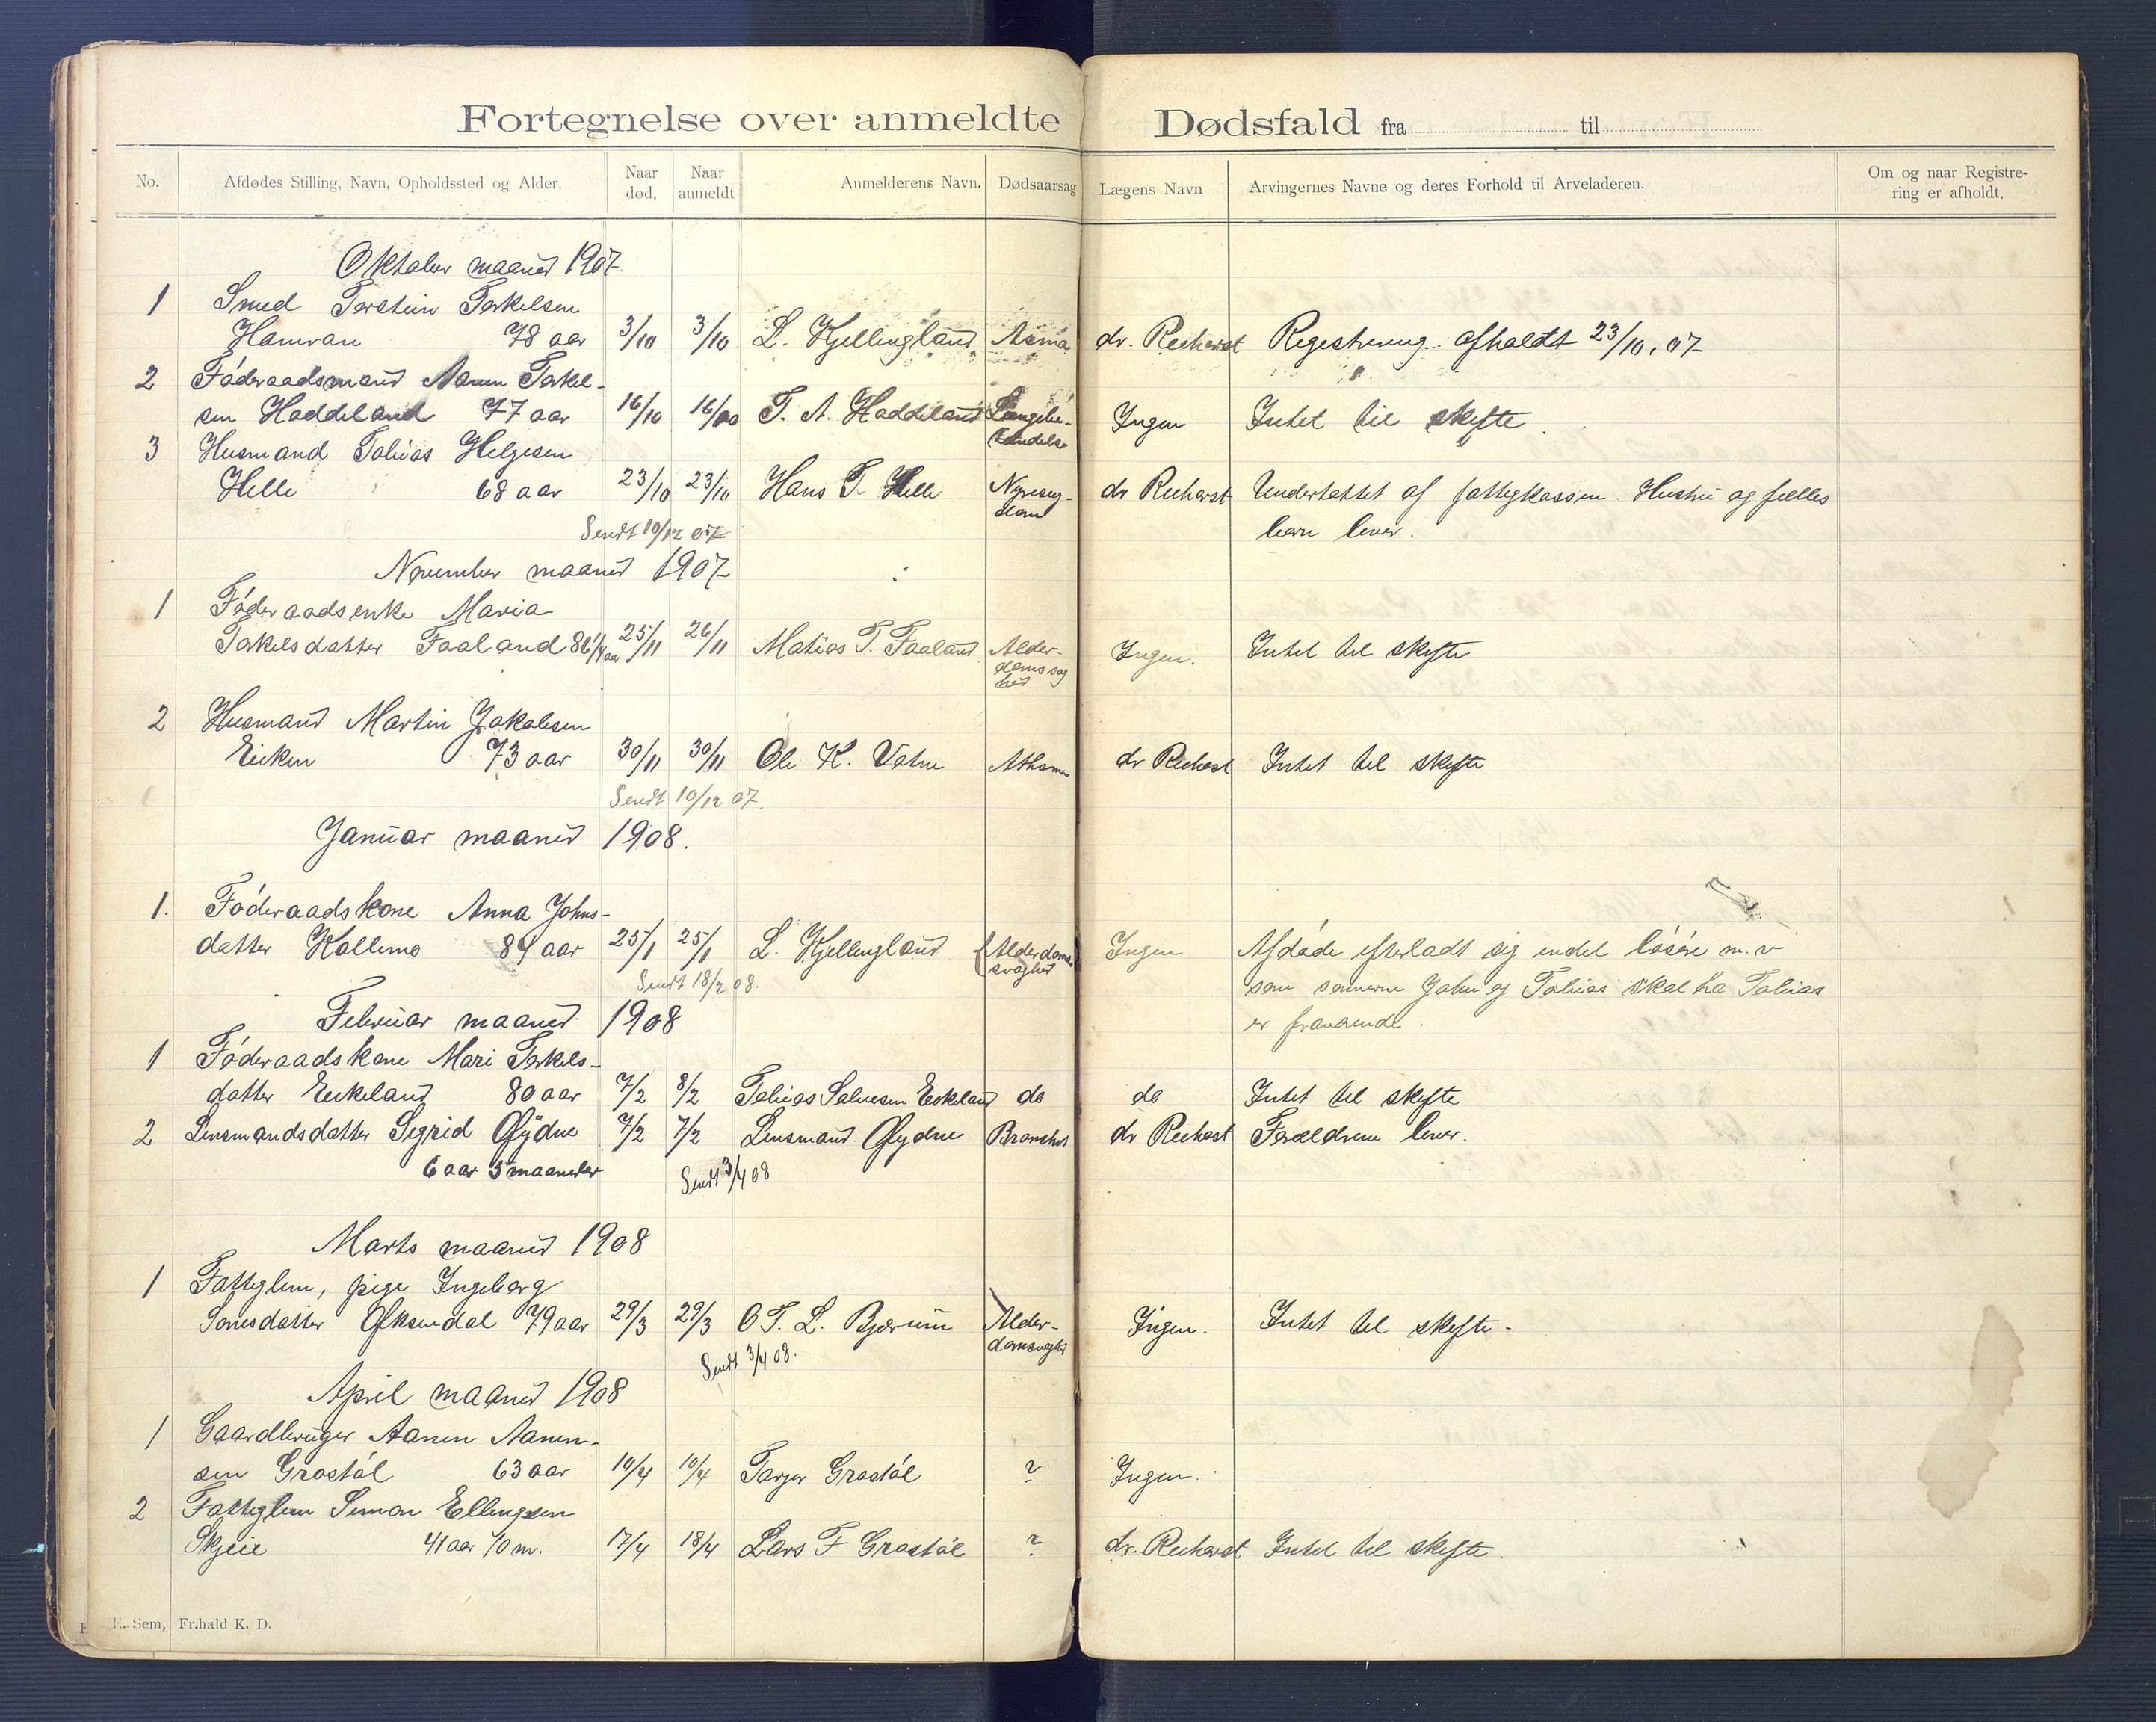 Fortegnelse over anmeldte Dødsfald fra til
No. Afdødes Stilling, Navn, Opholdssted og Alder. Naar død. Naar anmeldt Anmelderens Navn. Dødsaarsag Lægens Navn Arvingernes Navne og deres Forhold til Arveladeren. Om og naar Registrering er afholdt.
Oktober maaned 1907.
1 Smed Torstein Torkelsen
Hamran 78 aar 3/10 3/10 L. Kjellingland Asma dr. Regestrering afholdt 23/10. 07
2 Föderaadsmand Aanen Torkel-
sen Haddeland 77 aar 16/10 16/10 T. A. Haddeland Lungebe- Ingen Intet til skifte.
tændelse
3 Husmand Tobias Helgesen
Helle 68 aar 23/10 23/10 Hans T. Helle Nyresyg- dr Understøttet af fattigkassen. Hustru og fælles
dom børn lever.
Sendt 10/12 07
November maaned 1907
1 Föderaadsenke Maria
Torkelsdatter Faaland 86 1/4 aar 25/11 26/11 Matias T. Faaland Alder- Ingen. Intet til skifte
2 Husmand Martin Jakobsen
Eiken 73 aar 30/11 30/11 Ole K. Vatne Athsma dr Intet til skifte
Sendt 10/12 07.
Januar maaned 1908.
1. Föderaadskone Anna Johns-
datter Kollemo 84 aar 25/1 25/1 L. Kjellingland Alderdoms- Ingen Afdøde efterladt sig endel løsøre m.v
svaghed som sønnerne John og Tobias skal ha Tobias
Sendt 18/2 08. er fraværende.
Februar maaned 1908
1 Föderaadskone Mari Torkels-
datter Eikeland 80 aar 7/2 8/2 Tobias Salvesen Eikeland do do Intet til skifte
2 Lensmandsdatter Sigrid Gysdne 7/2 7/2 Lensmand Gydne dr Forældrene lever.
6 aar 5 maaneder Sendt 3/4 08
Marts maaned 1908
1 Fattiglem, pige Ingeborg
Tønesdatter Øksendal 79 aar 29/3 29/3 O T. L. Bjørum Alder- Ingen. Intet til skifte.
domsvaghed
Sendt 3/4 08.
April maaned 1908
1 Gaardbruger Aanen Aanen-
sen Grostöl 63 aar 10/4 10/4 Torjer Grostöl ? Ingen.
2 Fattiglem Simon Ellingsen
Skjeie 41 aar 10 m. 17/4 18/4 Lars F Grostöl ? dr. Intet til skifte.
E. Sem, Fr.hald K. D.